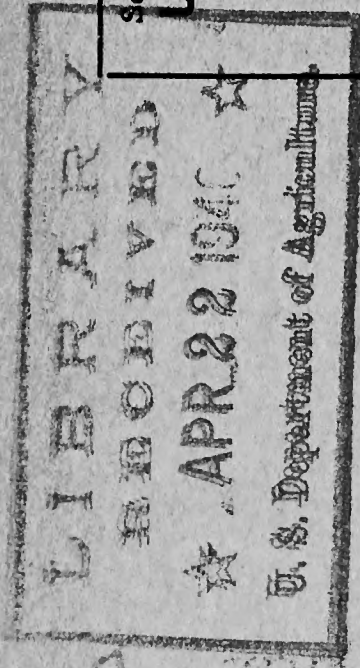 LIBRARY
RECEIVED
★ APR 22 194 ★
U. S. Department of Agriculture